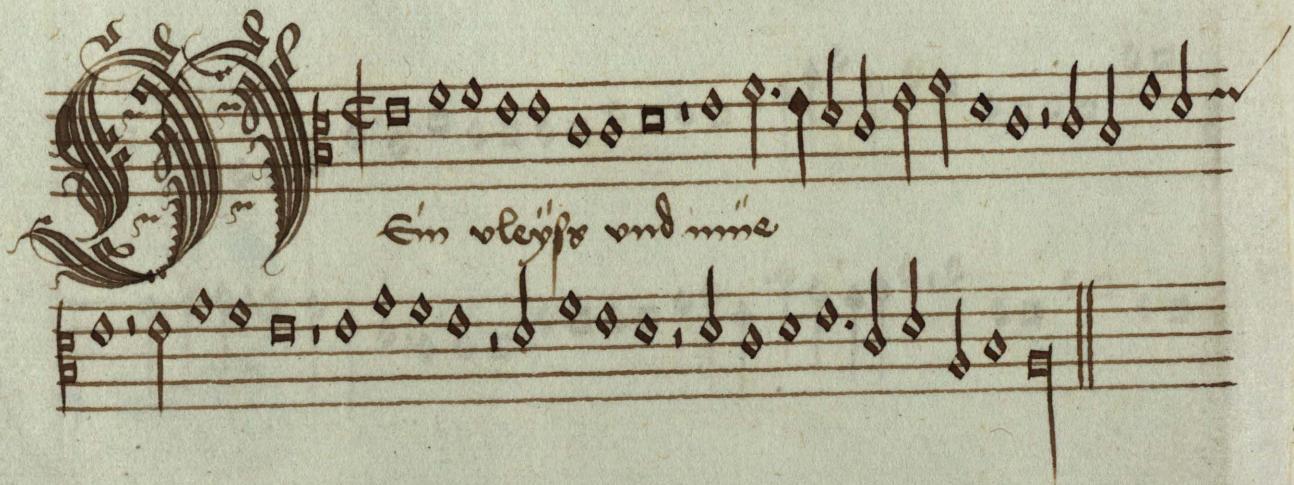 MEin vleÿss vnd müe